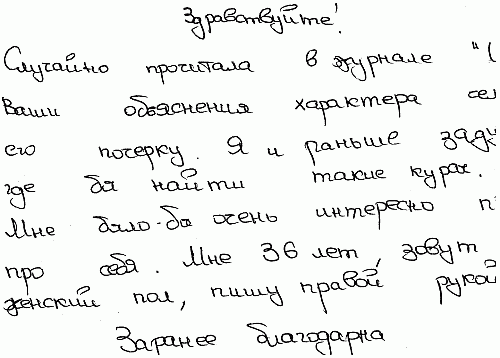 Здравствуйте!
Случайно прочитала в журнале "(
Ваши объяснения характера
его почерку. Я и раньше
где бы найти такие курсы.
Мне было-бы очень интересно
про себя. Мне 36 лет, зовут
женский пол, пишу правой рукой
Заранее благодарна